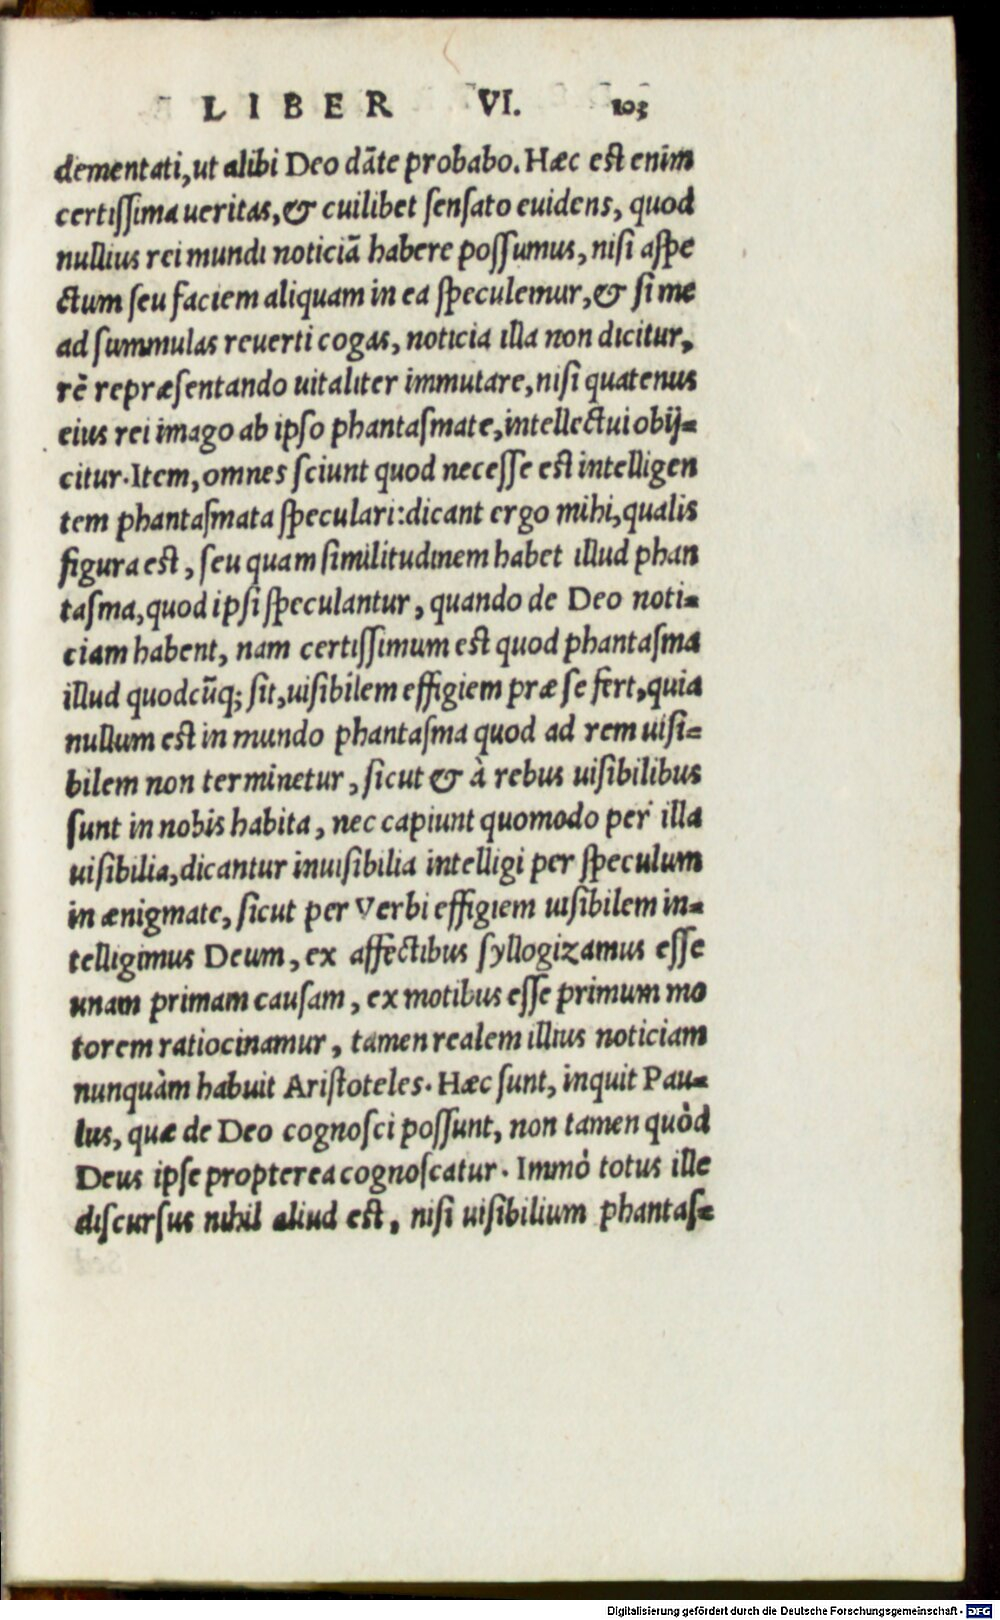 LIBER VI. 103
dementati, ut alibi Deo dãte probabo. Hæc est enim
certißima ueritas, & cuilibet sensato euidens, quod
nullius rei mundi noticiã habere possumus, nisi aspe
ctum seu faciem aliquam in ea speculemur, & si me
ad summulas reuerti cogas, noticia illa non dicitur,
rẽ repræsentando uitaliter immutare, nisi quatenus
eius rei imago ab ipso phantasmate, intellectui obij=
citur. Item, omnes sciunt quod necesse est intelligen
tem phantasmata speculari: dicant ergo mihi, qualis
figura est, seu quam similitudinem habet illud phan
tasma, quod ipsi speculantur, quando de Deo noti=
ciam habent, nam certissimum est quod phantasma
illud quodcũq; sit, uisibilem effigiem præ se fert, quia
nullum est in mundo phantasma quod ad rem uisi=
bilem non terminetur, sicut & à rebus uisibilibus
sunt in nobis habita, nec capiunt quomodo per illa
uisibilia, dicantur inuisibilia intelligi per speculum
in ænigmate, sicut per Verbi effigiem uisibilem in=
telligimus Deum, ex affectibus syllogizamus esse
unam primam causam, ex motibus esse primum mo
torem ratiocinamur, tamen realem illius noticiam
nunquàm habuit Aristoteles. Hæc sunt, inquit Pau=
lus, quæ de Deo cognosci possunt, non tamen quòd
Deus ipse propterea cognoscatur. Immò totus ille
discursus nihil aliud est, nisi uisibilium phantas=
Digitalisierung gefördert durch die Deutsche Forschungsgemeinschaft - DFG